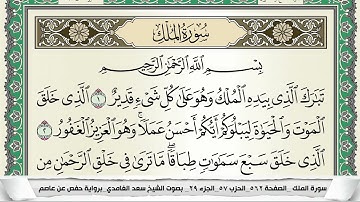 سُورَةُ المُلْكِ
بِسْمِ اللَّهِ الرَّحْمَٰنِ الرَّحِيمِ
تَبَارَكَ الَّذِي بِيَدِهِ الْمُلْكُ وَهُوَ عَلَىٰ كُلِّ شَيْءٍ قَدِيرٌ ١ الَّذِي خَلَقَ
الْمَوْتَ وَالْحَيَوٰةَ لِيَبْلُوَكُمْ أَيُّكُمْ أَحْسَنُ عَمَلًا ۚ وَهُوَ الْعَزِيزُ الْغَفُورُ ٢
الَّذِي خَلَقَ سَبْعَ سَمَٰوَٰتٍ طِبَاقًا ۖ مَّا تَرَىٰ فِي خَلْقِ الرَّحْمَٰنِ مِن
سورة الملك_ الصفحة ٥٦٢_ الحزب ٥٧_ الجزء ٢٩_ بصوت الشيخ سعد الغامدي_ برواية حفص عن عاصم